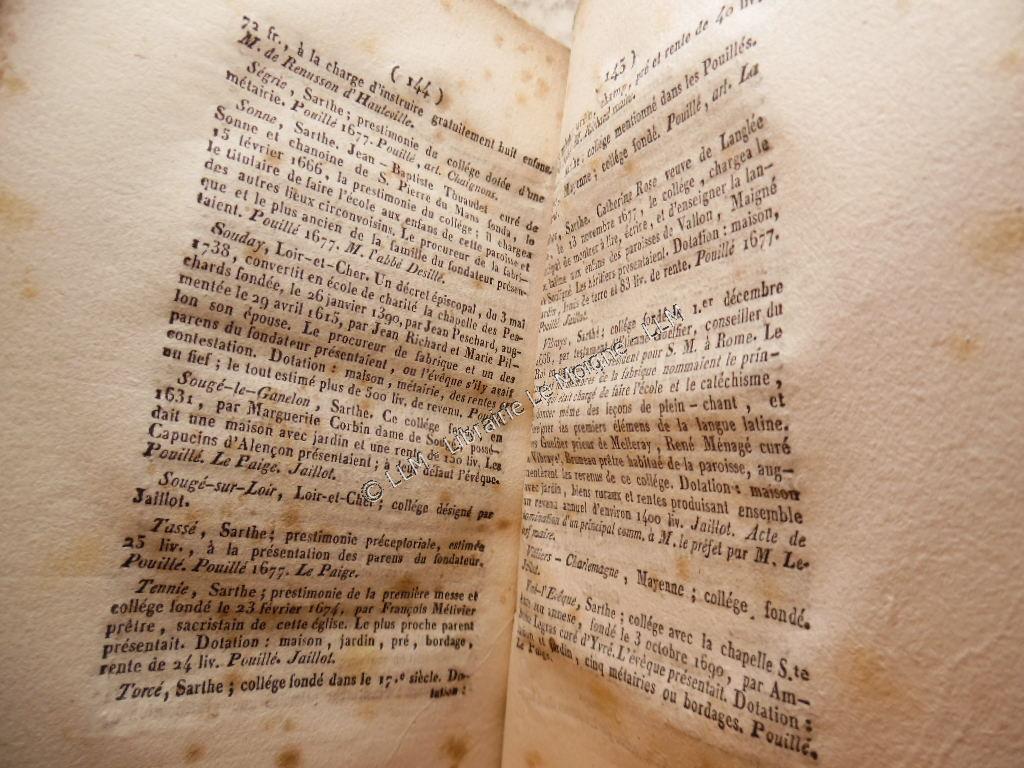 ( 144 )
72 fr., à la charge d'instruire gratuitement huit enfans.
M. de Renusson d'Hauteville.
Ségrie, Sarthe; prestimonie de collége dotée d'une
métairie. Pouillé 1677. Pouillé, art. Chaignons.
Sonne, Sarthe. Jean-Baptiste Thuaudet curé de
Sonne et chanoine de S. Pierre du Mans fonda, le
15 février 1666, la prestimonie du collége; il chargea
le titulaire de faire l'école aux enfans de cette paroisse et
des autres lieux circonvoisins. Le procureur de la fabri-
que et le plus ancien de la famille du fondateur présen-
taient. Pouillé 1677. M. l'abbé Desille.
Souday, Loir-et-Cher. Un décret épiscopal, du 3 mai
1738, convertit en école de charité la chapelle des Pes-
chards fondée, le 26 janvier 1390, par Jean Peschard, aug-
mentée le 29 avril 1615, par Jean Richard et Marie Pil-
lon son épouse. Le procureur de fabrique et un des
parens du fondateur présentaient, ou l'évêque s'il y avait
contestation. Dotation : maison, métairie, des rentes
au fief; le tout estimé plus de 500 liv. de revenu.
Sougé-le-Ganelon, Sarthe. Ce collége
1631, par Marguerite Corbin dame de possé-
dait une maison avec jardin et une rente de 150 liv. Les
Capucins d'Alençon présentaient; à défaut l'évêque.
Pouillé. Le Paige. Jaillot.
Sougé-sur-Loir, Loir-et-Cher; collége désigné par
Jaillot.
Tassé, Sarthe; prestimonie préceptoriale, estimée
25 liv., à la présentation des parens du fondateur.
Pouillé. Pouillé 1677. Le Paige.
Tennie, Sarthe; prestimonie de la première messe et
collége fondé le 23 février 1674, par François Métivier
prêtre, sacristain de cette église. Le plus proche parent
présentait. Dotation : maison, jardin, pré, bordage,
rente de 24 liv. Pouillé. Jaillot.
Torcé, Sarthe; collége fondé dans le 17.e siècle. Do-
tation :
145 )
pré et rente de 40 liv.
collége mentionné dans les Pouillés.
Mayenne; collége fondé. Pouillé, art. La
Sarthe. Catherine Rose veuve de Langlée
le 13 novembre 1677, le collége, chargea le
de montrer à lire, écrire, et d'enseigner la lan-
aux enfans des paroisses de Vallon, Maigné
Souligné. Les héritiers présentaient. Dotation : maison,
de terre et 83 liv. de rente. Pouillé 1677.
Pouillé. Jaillot.
Vibraye, Sarthe; collége fondé, 1.er décembre
par testament conseiller du
Roi pour S. M. à Rome. Le
de la fabrique nommaient le prin-
était chargé de faire l'école et le catéchisme,
donner même des leçons de plein-chant, et
enseigner les premiers élémens de la langue latine.
Gualtier prieur de Melleray, René Ménagé curé
Vibraye, Bruneau prêtre habitué de la paroisse, aug-
mentèrent les revenus de ce collége. Dotation : maison
avec jardin, biens ruraux et rentes produisant ensemble
un revenu annuel d'environ 1400 liv. Jaillot. Acte de
nomination d'un principal comm. à M. le préfet par M. Le-
maire.
Villiers-Charlemagne, Mayenne; collége fondé.
Jaillot.
l'Evêque, Sarthe; collége avec la chapelle S.te
fondé le 3 octobre 1690, par Am-
Legras curé d'Yvré. L'évêque présentait. Dotation :
et jardin, cinq métairies ou bordages. Pouillé.
Le Paige.
© LLM - Librairie Le Moigne - LLM